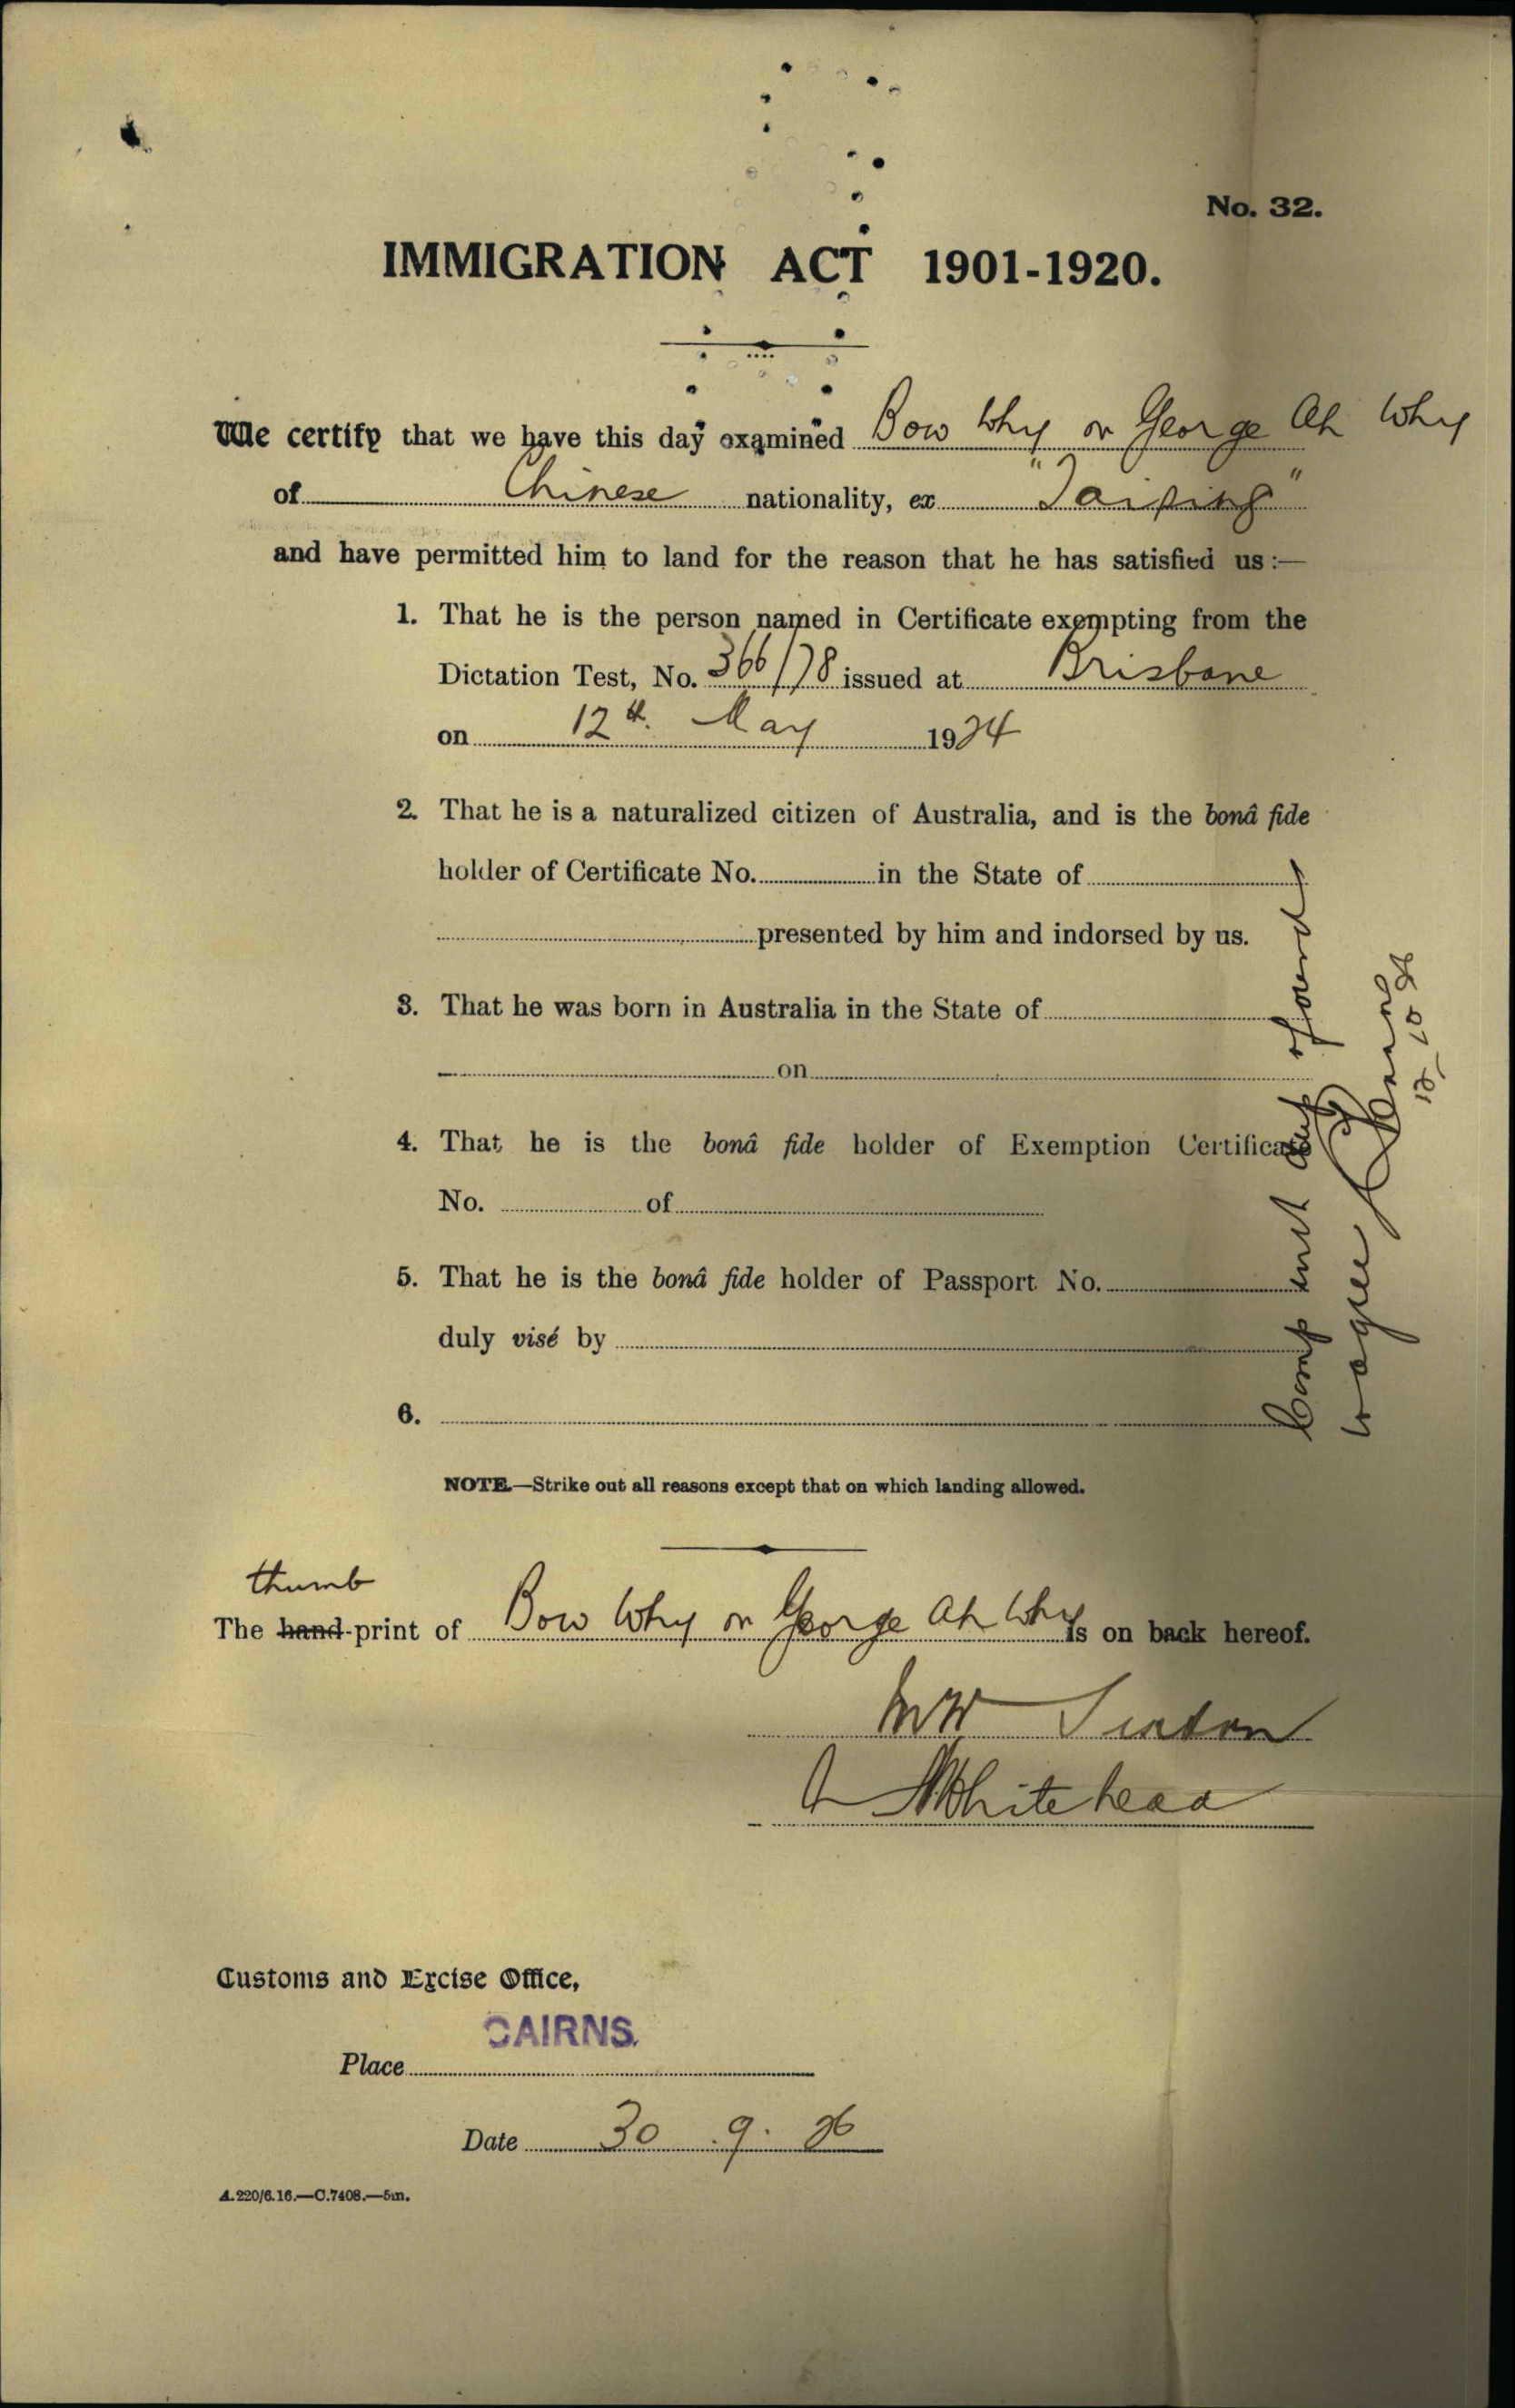 No. 32.
IMMIGRATION ACT 1901-1920.
We certify that we have this day examined Bow Why or George Ah Why
of Chinese nationality, ex "Taiping"
and have permitted him to land for the reason that he has satisfied us :—
1. That he is the person named in Certificate exempting from the
Dictation Test, No. 366/78 issued at Brisbane
on 12th. May 1924
2. That he is a naturalized citizen of Australia, and is the bonâ fide
holder of Certificate No. in the State of
presented by him and indorsed by us.
3. That he was born in Australia in the State of
on
4. That he is the bonâ fide holder of Exemption Certificate
No. of
5. That he is the bonâ fide holder of Passport No.
duly visé by
6.
Comp with and found
to agree
12 10 26
NOTE.—Strike out all reasons except that on which landing allowed.
thumb
The hand-print of Bow Why or George Ah Why is on back hereof.
Whitehead
Customs and Excise Office,
CAIRNS.
Place
Date 30 . 9 . 26
A.220/6.16.—C.7408.—5m.